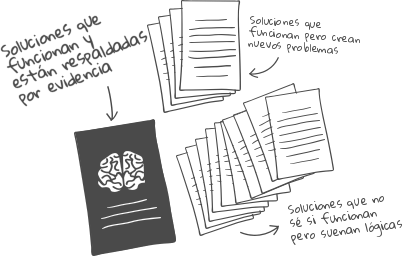 Soluciones que
funcionan y
están respaldadas
por evidencia
Soluciones que
funcionan pero crean
nuevos problemas
Soluciones que no
sé si funcionan
pero suenan lógicas